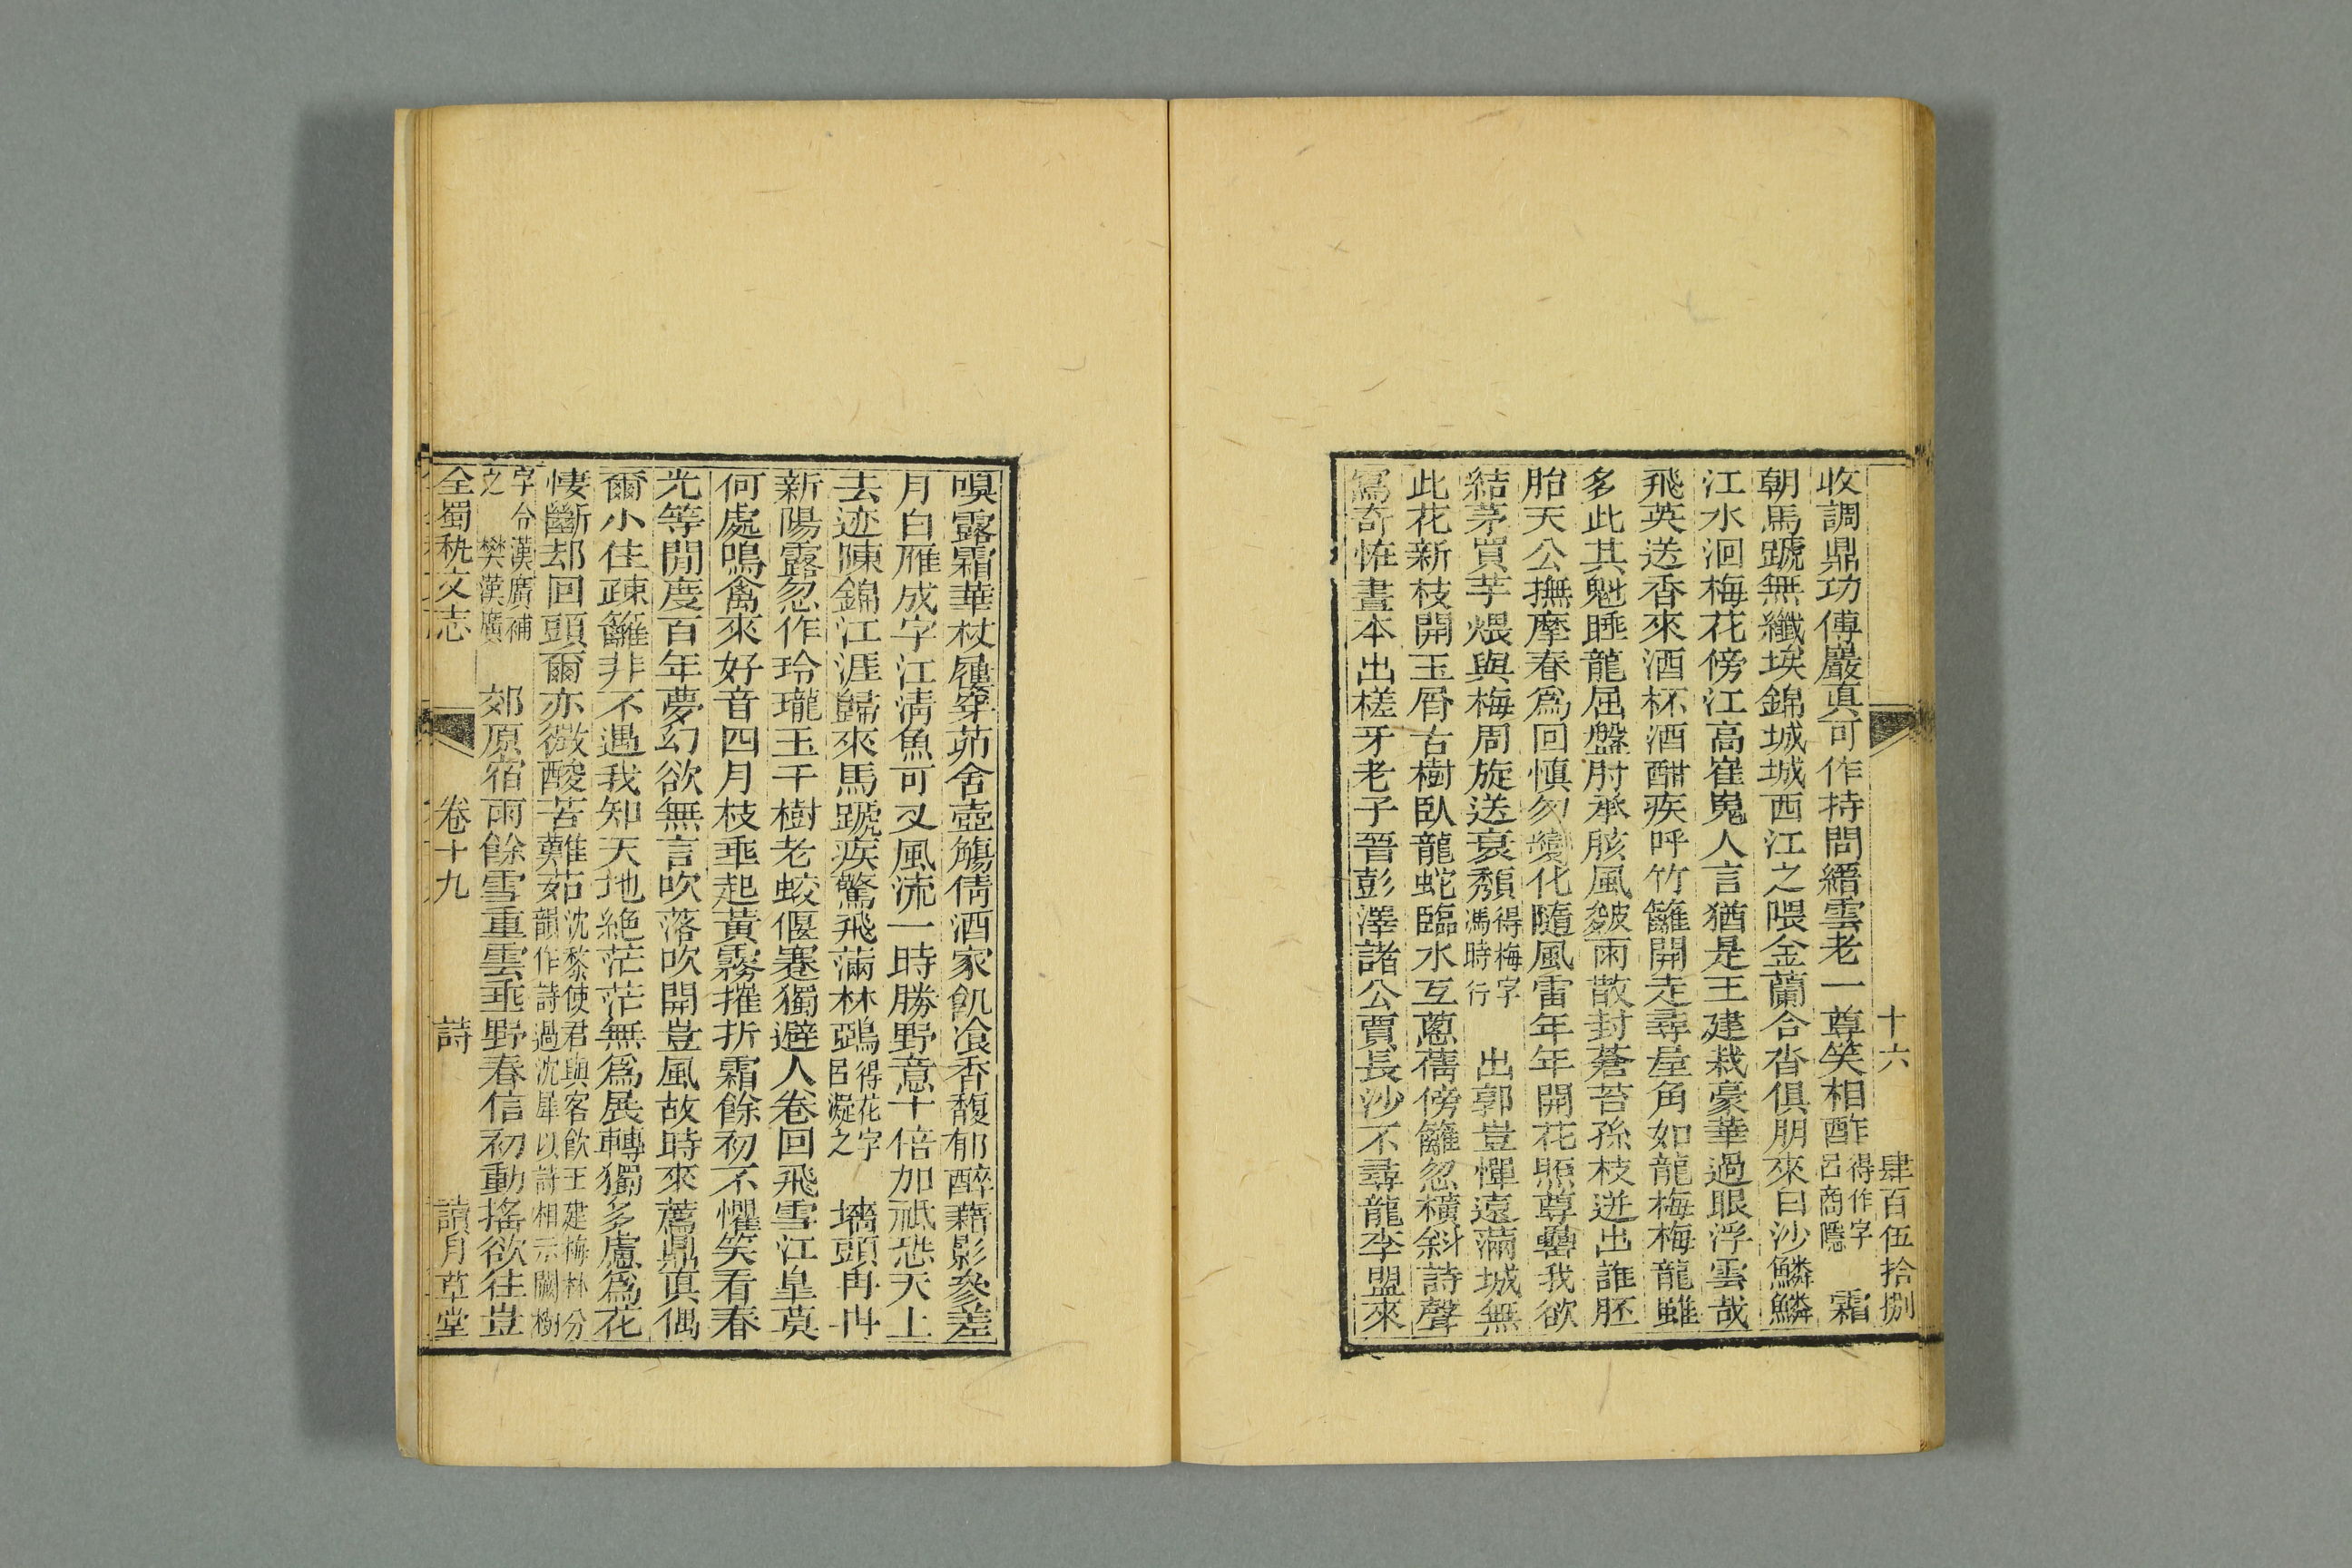 十六 肆百伍拾捌
收調鼎功傅巖真可作持問縉雲老一尊笑相酢得作字呂商隱 霜
朝馬蹏無纖埃錦城城西江之隈金蘭合沓俱朋來白沙鱗鱗
江水洄梅花傍江高崔嵬人言猶是王建栽豪華過眼浮雲哉
飛英送香來酒杯酒酣疾呼竹籬開走尋屋角如龍梅梅龍雖
多此其魁睡龍屈盤肘承胲風皴雨散封蒼苔孫枝迸出誰胚
胎天公撫摩春爲回慎勿變化隨風雷年年開花照尊罍我欲
結茅買芋煨與梅周旋送衰頹得梅字馮時行 出郭豈憚遠滿城無
此花新枝開玉屑古樹臥龍蛇臨水互蔥蒨傍籬忽橫斜詩聲
寫奇恠畫本出槎牙老子晉彭澤諸公賈長沙不尋龍李盟來
嗅露霜華杖屨穿茆舍壺觴倩酒家飢飡香馥郁醉藉影參差
月白雁成字江清魚可叉風流一時勝野意十倍加祇恐天上
去迹陳錦江涯歸來馬蹏疾驚飛滿林鵶得花字呂凝之 墻頭冉冉
新陽露忽作玲瓏玉千樹老蛟偃蹇獨避人卷回飛雪江皐莫
何處鳴禽來好音四月枝垂起黃霧摧折霜餘初不懼笑看春
光等閒度百年夢幻欲無言吹落吹開豈風故時來薦鼎真偶
爾小住疎籬非不遇我知天地絶茫茫無爲展轉獨多慮爲花
悽斷却回頭爾亦微酸苦難茹沈黎使君與客飲王建梅林分韻作詩過沈犀以詩相示闕樹
字令漢廣補之 樊漢廣 郊原宿雨餘雪重雲垂野春信初動搖欲往豈
全蜀秇文志 卷十九 詩 讀月草堂